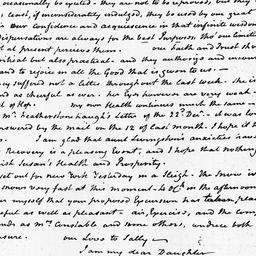 occasionally be excited. they are not to be reproved, but they
is laudable, if immoderately indulged, they be used by our great
in Our Confidence and acquiescence in that infinite wisdom
Dispensations are always for the best Purposes tho' our limited
not at present perceive them. our Faith and Trust should
critical but also practical – and they authorize and encourage
and to rejoice in all the Good that is given to us –
suffered not a little throughout the last week. She is
and as cheerful as ever. her Eyes however are very weak.
of Hop. my own Health continues much the same –
Mr. Heathershaughs Letter of the 22d Decr. – it was
answered by the mail on the 12 of last month. I hope it
I am glad that Aunt Livingstons anxieties have
Recovery is a pleasing Event, and I hope that nothing
Susan's Health and Prosperity.
set out for New York yesterday in a Sleigh. the Snow is
snows very fast at this moment – 4 oC. in the afternoon
myself that your proposed Excursion has taken place
useful as well as pleasant – air, Exercise, and the Company
as Mrs. Constable and some others, conduce both
pleasure. our Love to Sally –
I am my dear Daughter